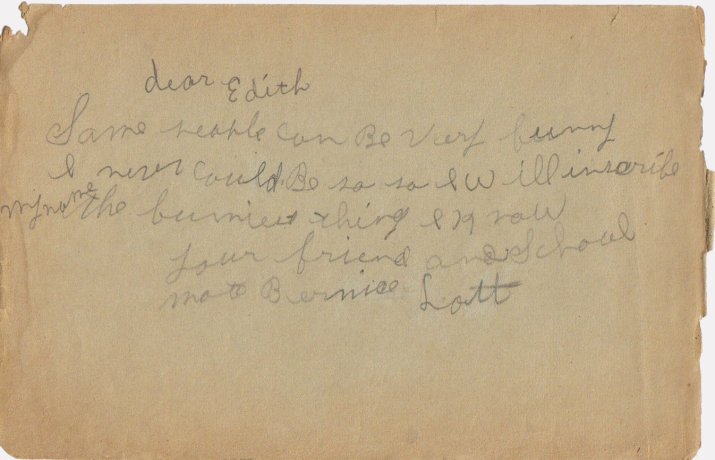 dear Edith
Some people can Be very funny
I never could Be so so I will inscribe
my name the funniest thing I know
your friend and School
mate Bernice Lott